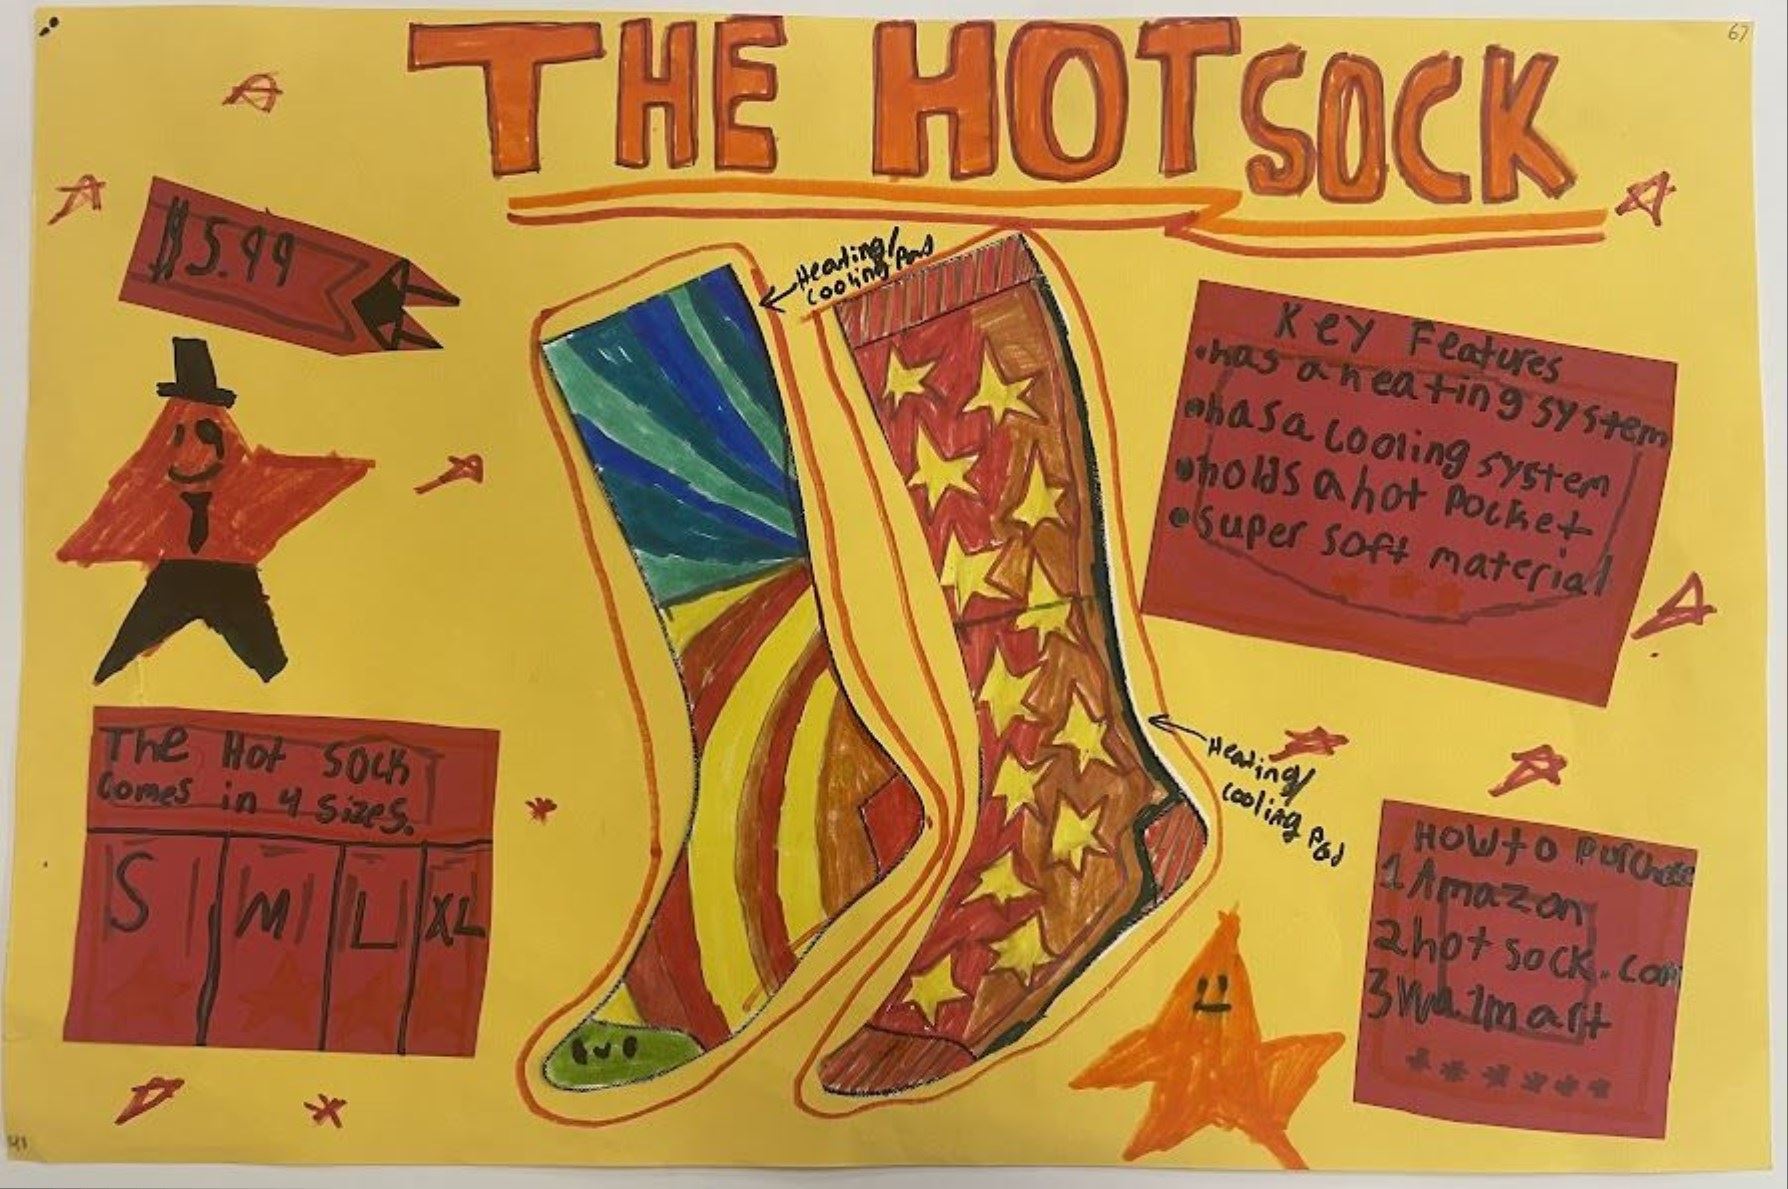 THE HOT SOCK
67
$5.99
Heating/
Cooling Pad
Key Features
•has a heating system
•has a cooling system
•holds a hot pocket
•super soft material
The Hot Sock
comes in 4 sizes.
S M L XL
Heating/
cooling Pad
How to Purchase
1 Amazon
2 hot sock.com
3 Walmart